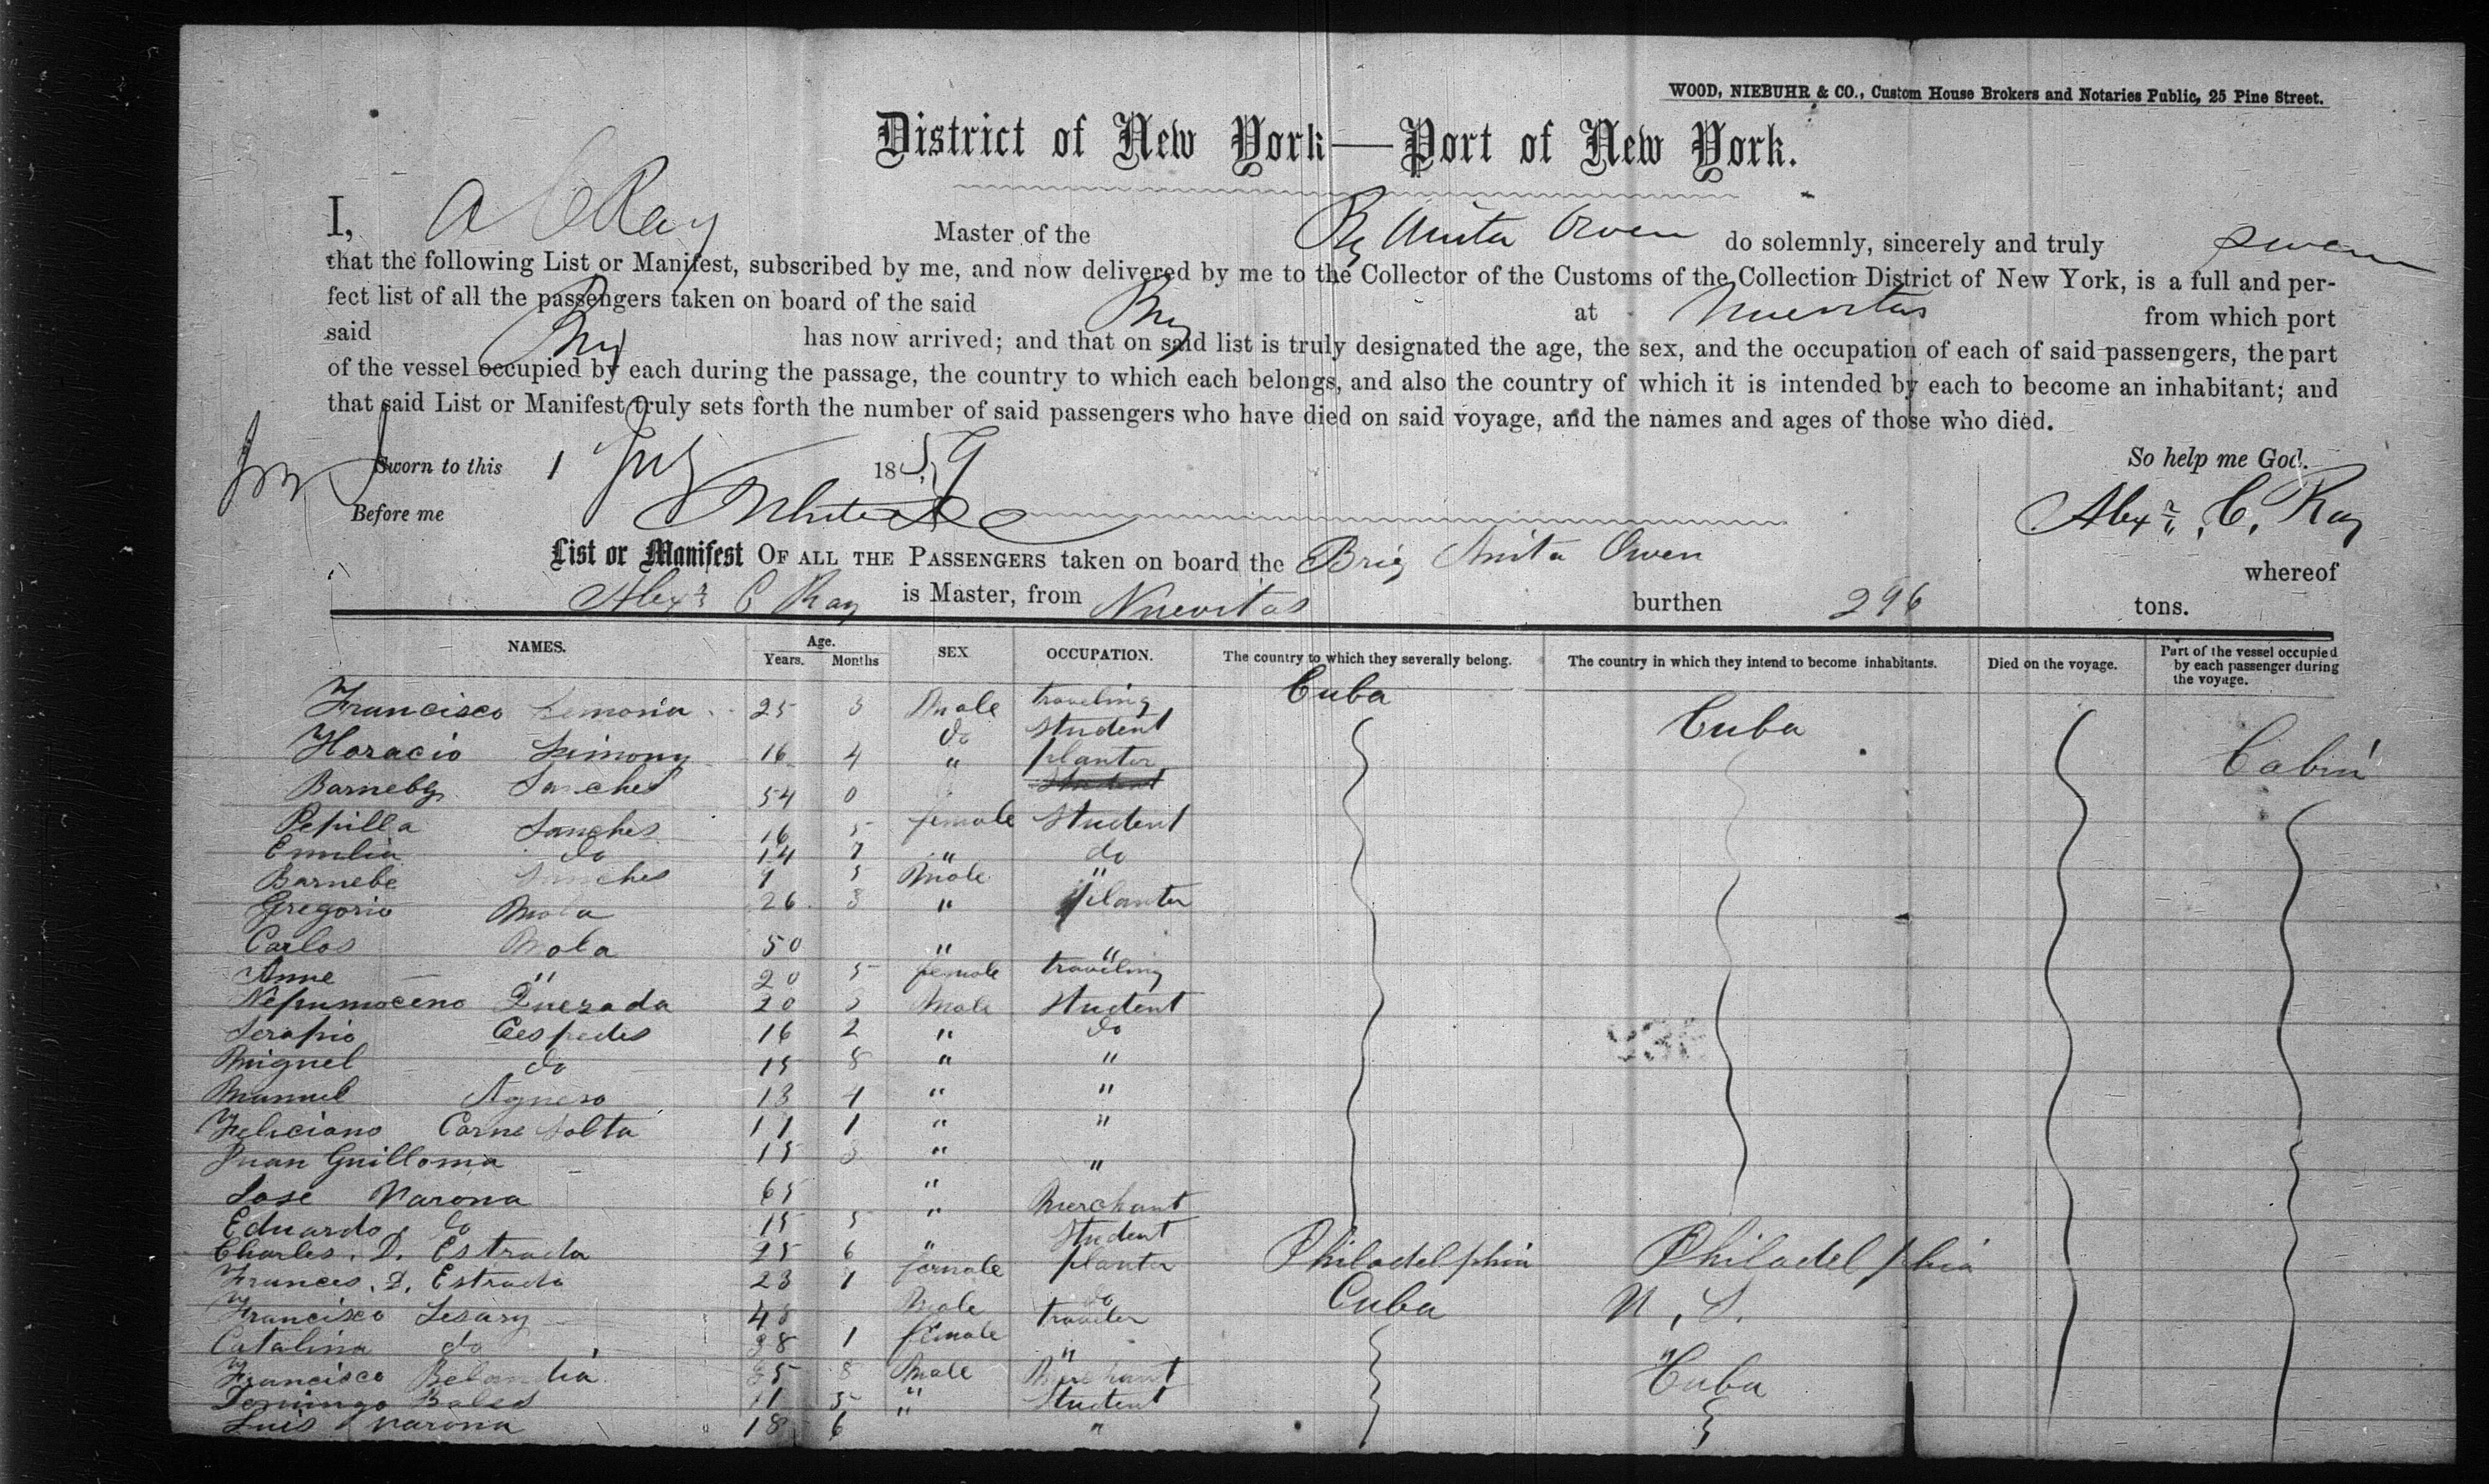 WOOD, NIEBUHR & CO., Custom House Brokers and Notaries Public, 25 Pine Street.
District of New York—Port of New York.
I, A C Ray Master of the Brig Anita Owen do solemnly, sincerely and truly swear
that the following List or Manifest, subscribed by me, and now delivered by me to the Collector of the Customs of the Collection District of New York, is a full and per-
fect list of all the passengers taken on board of the said Brig at Nuevitas from which port
said Brig has now arrived; and that on said list is truly designated the age, the sex, and the occupation of each of said passengers, the part
of the vessel occupied by each during the passage, the country to which each belongs, and also the country of which it is intended by each to become an inhabitant; and
that said List or Manifest truly sets forth the number of said passengers who have died on said voyage, and the names and ages of those who died.
Sworn to this 1 July 1859 So help me God.
Before me Alexr. C. Ray
List or Manifest OF ALL THE PASSENGERS taken on board the Brig Anita Owen whereof
Alexr C Ray is Master, from Nuevitas burthen 296 tons.
NAMES. Age. Years. Months SEX OCCUPATION. The country to which they severally belong. The country in which they intend to become inhabitants. Died on the voyage. Part of the vessel occupied by each passenger during the voyage.
Francisco 25 3 Male traveling Cuba Cuba Cabin
Horacio 16 4 do Student
Barneby Sanches 54 0 " planter
Pepilla Sanches 16 5 female Student
Emilia do 14 7 " do
Barnebe Sanches 9 5 Male "
Gregorio Mola 26 3 " planter
Carlos Mola 50 " "
Anne " 20 5 female traveling
Nepumoceno Quesada 20 3 Male Student
Serapio Cespedes 16 2 " do
Miguel do 15 8 " "
Manuel Aguero 13 4 " "
Feliciano Carne Solta 11 1 " "
Juan Guilloma 15 3 " "
Jose Varona 65 " Merchant
Eduardo do 15 5 " Student
Charles. D. Estrada 25 6 " planter Philadelphia Philadelphia
Frances. D. Estrada 23 1 female do
Francisco 48 Male traveler Cuba N, S.
Catalina do 38 1 female " "
Francisco 35 8 Male Merchant Cuba
Domingo 11 5 " Student
Luis Varona 18 6 " "